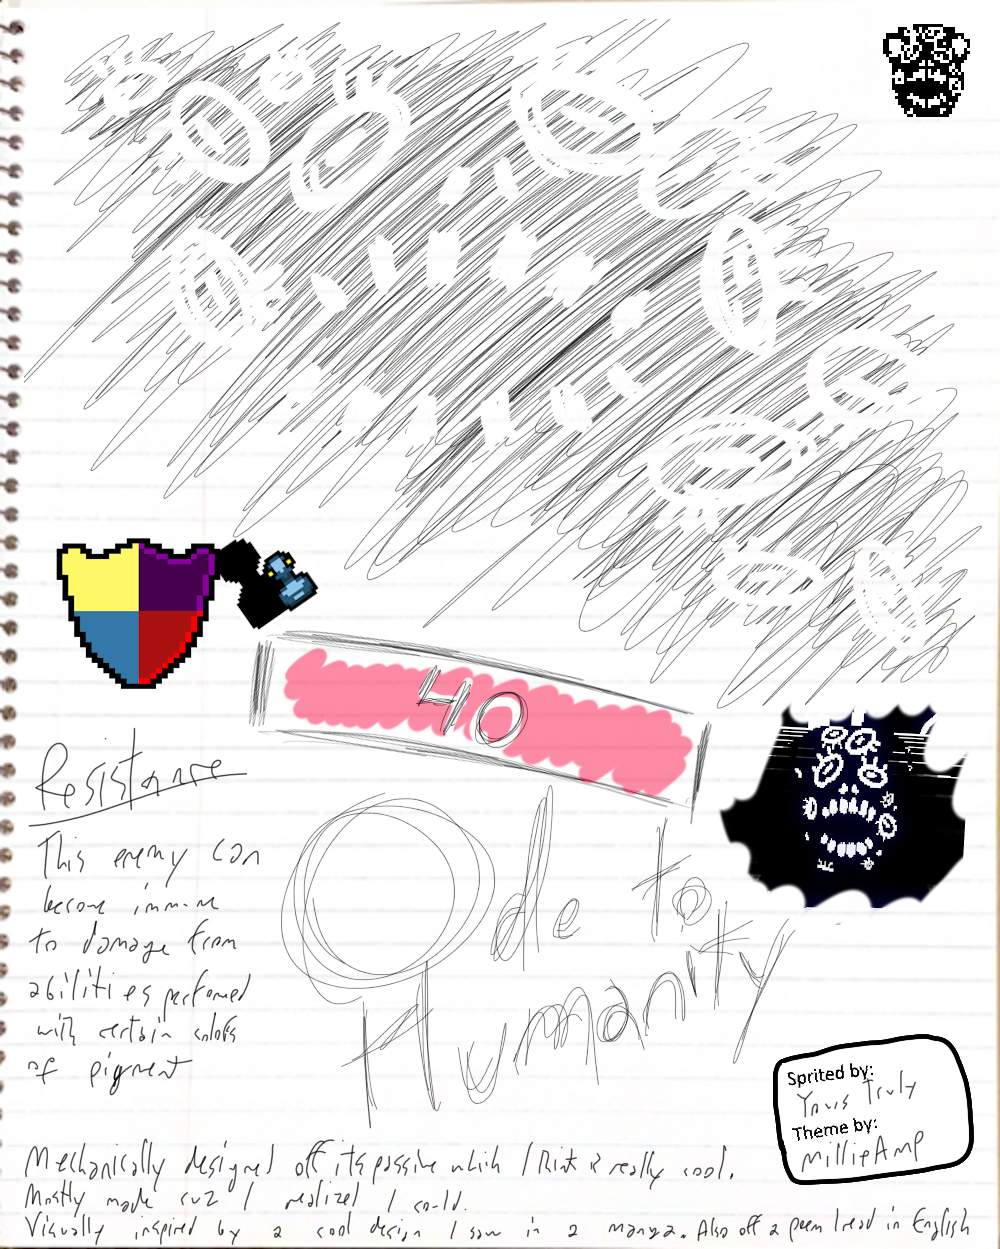 40
Resistance
This enemy can
become immune
to damage from
abilities performed
with certain colors
of pigment
Ode to
Humanity
Sprited by:
Yours Truly
Theme by:
MillieAmp
Mechanically designed off its passive which I think is really cool.
Mostly made cuz I realized I could.
Visually inspired by a cool design I saw in a manga. Also off a poem I read in English